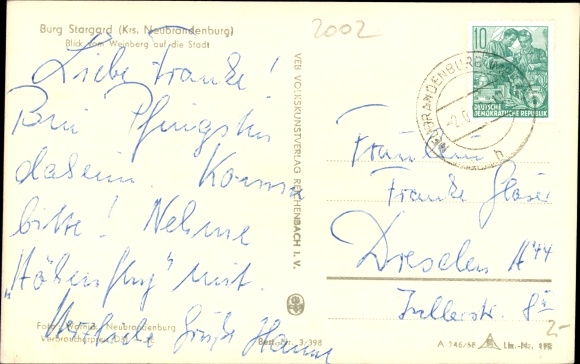 Burg Stargard (Krs. Neubrandenburg)
Blick vom Weinberg auf die Stadt
2002
Liebe Franke!
Bin Pfingsten
daheim. Komme
bitte! Nehme
"Höhenflug" mit.
Herzliche Grüße Hanna
Foto: Neubrandenburg
Verbraucherpreis DM
Best.-Nr. 3/398
VEB VOLKSKUNSTVERLAG REICHENBACH I. V.
10
DEUTSCHE
DEMOKRATISCHE REPUBLIK
NEUBRANDENBURG
h
Fräulein
Franke Gläser
Dresden A 44
A 246/58 Liz.-Nr.
2-